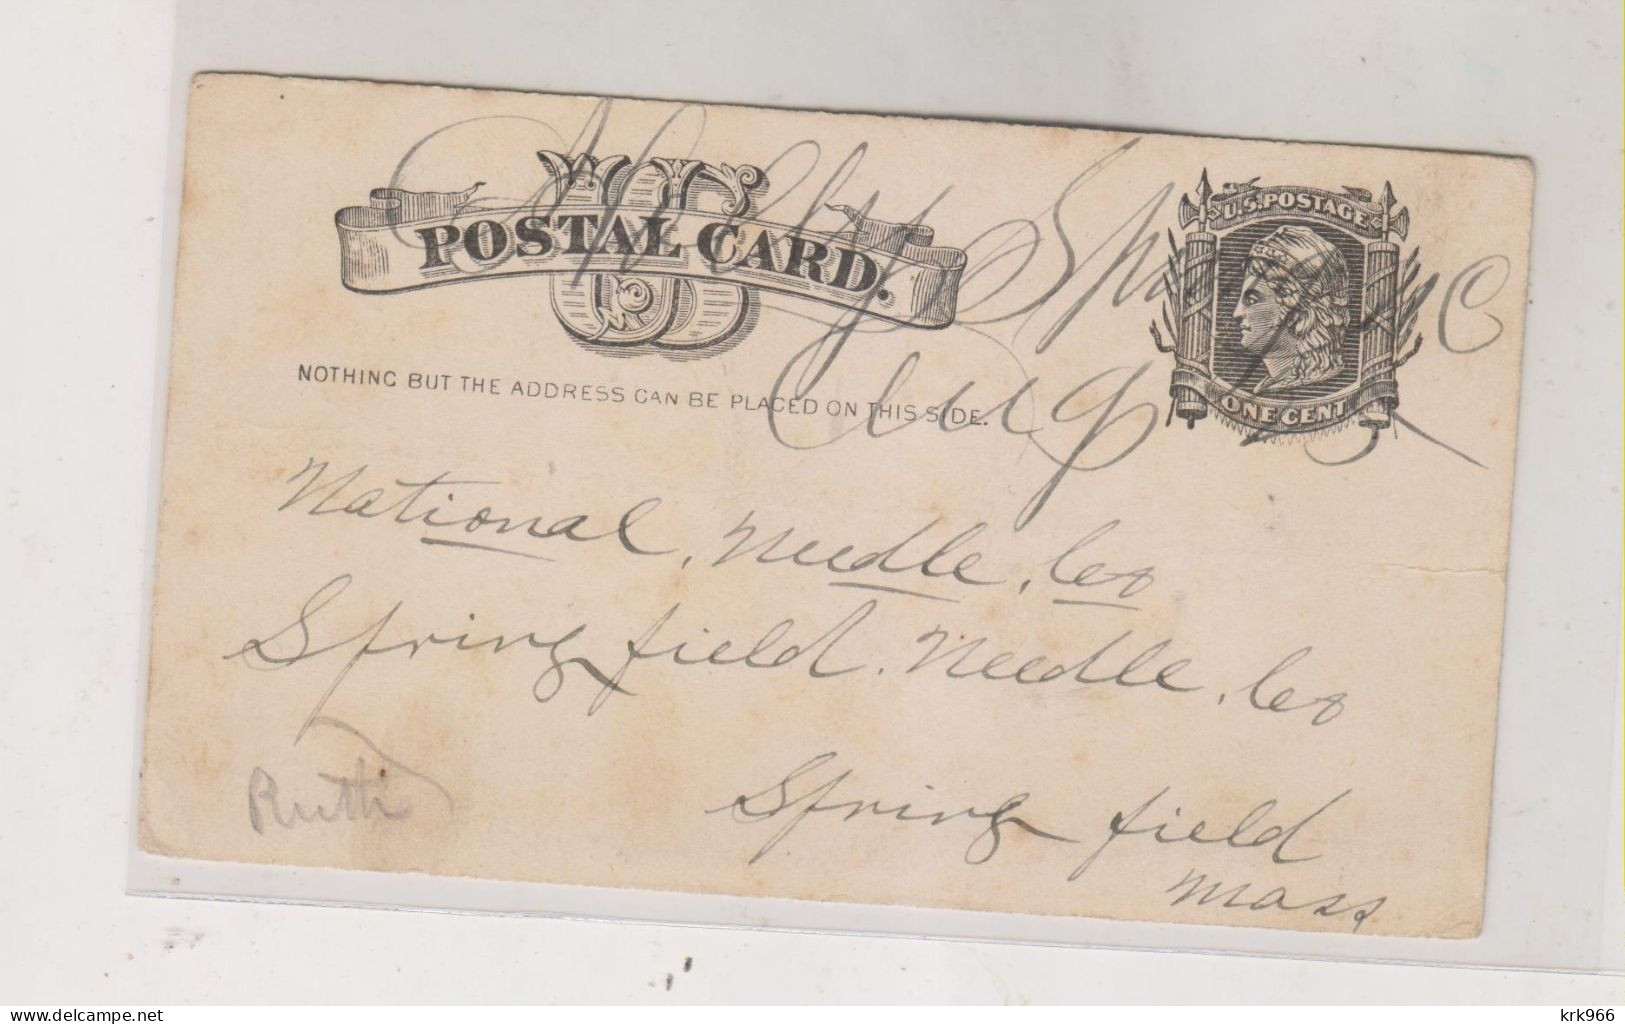 U.S.POSTAGE
POSTAL CARD.
US
Shelby Springs
Aug
ONE CENT
NOTHING BUT THE ADDRESS CAN BE PLACED ON THIS SIDE.
National. Needle. Co
Springfield. Needle. Co
Springfield
Mass
Ruth
delcampe.net
krk966